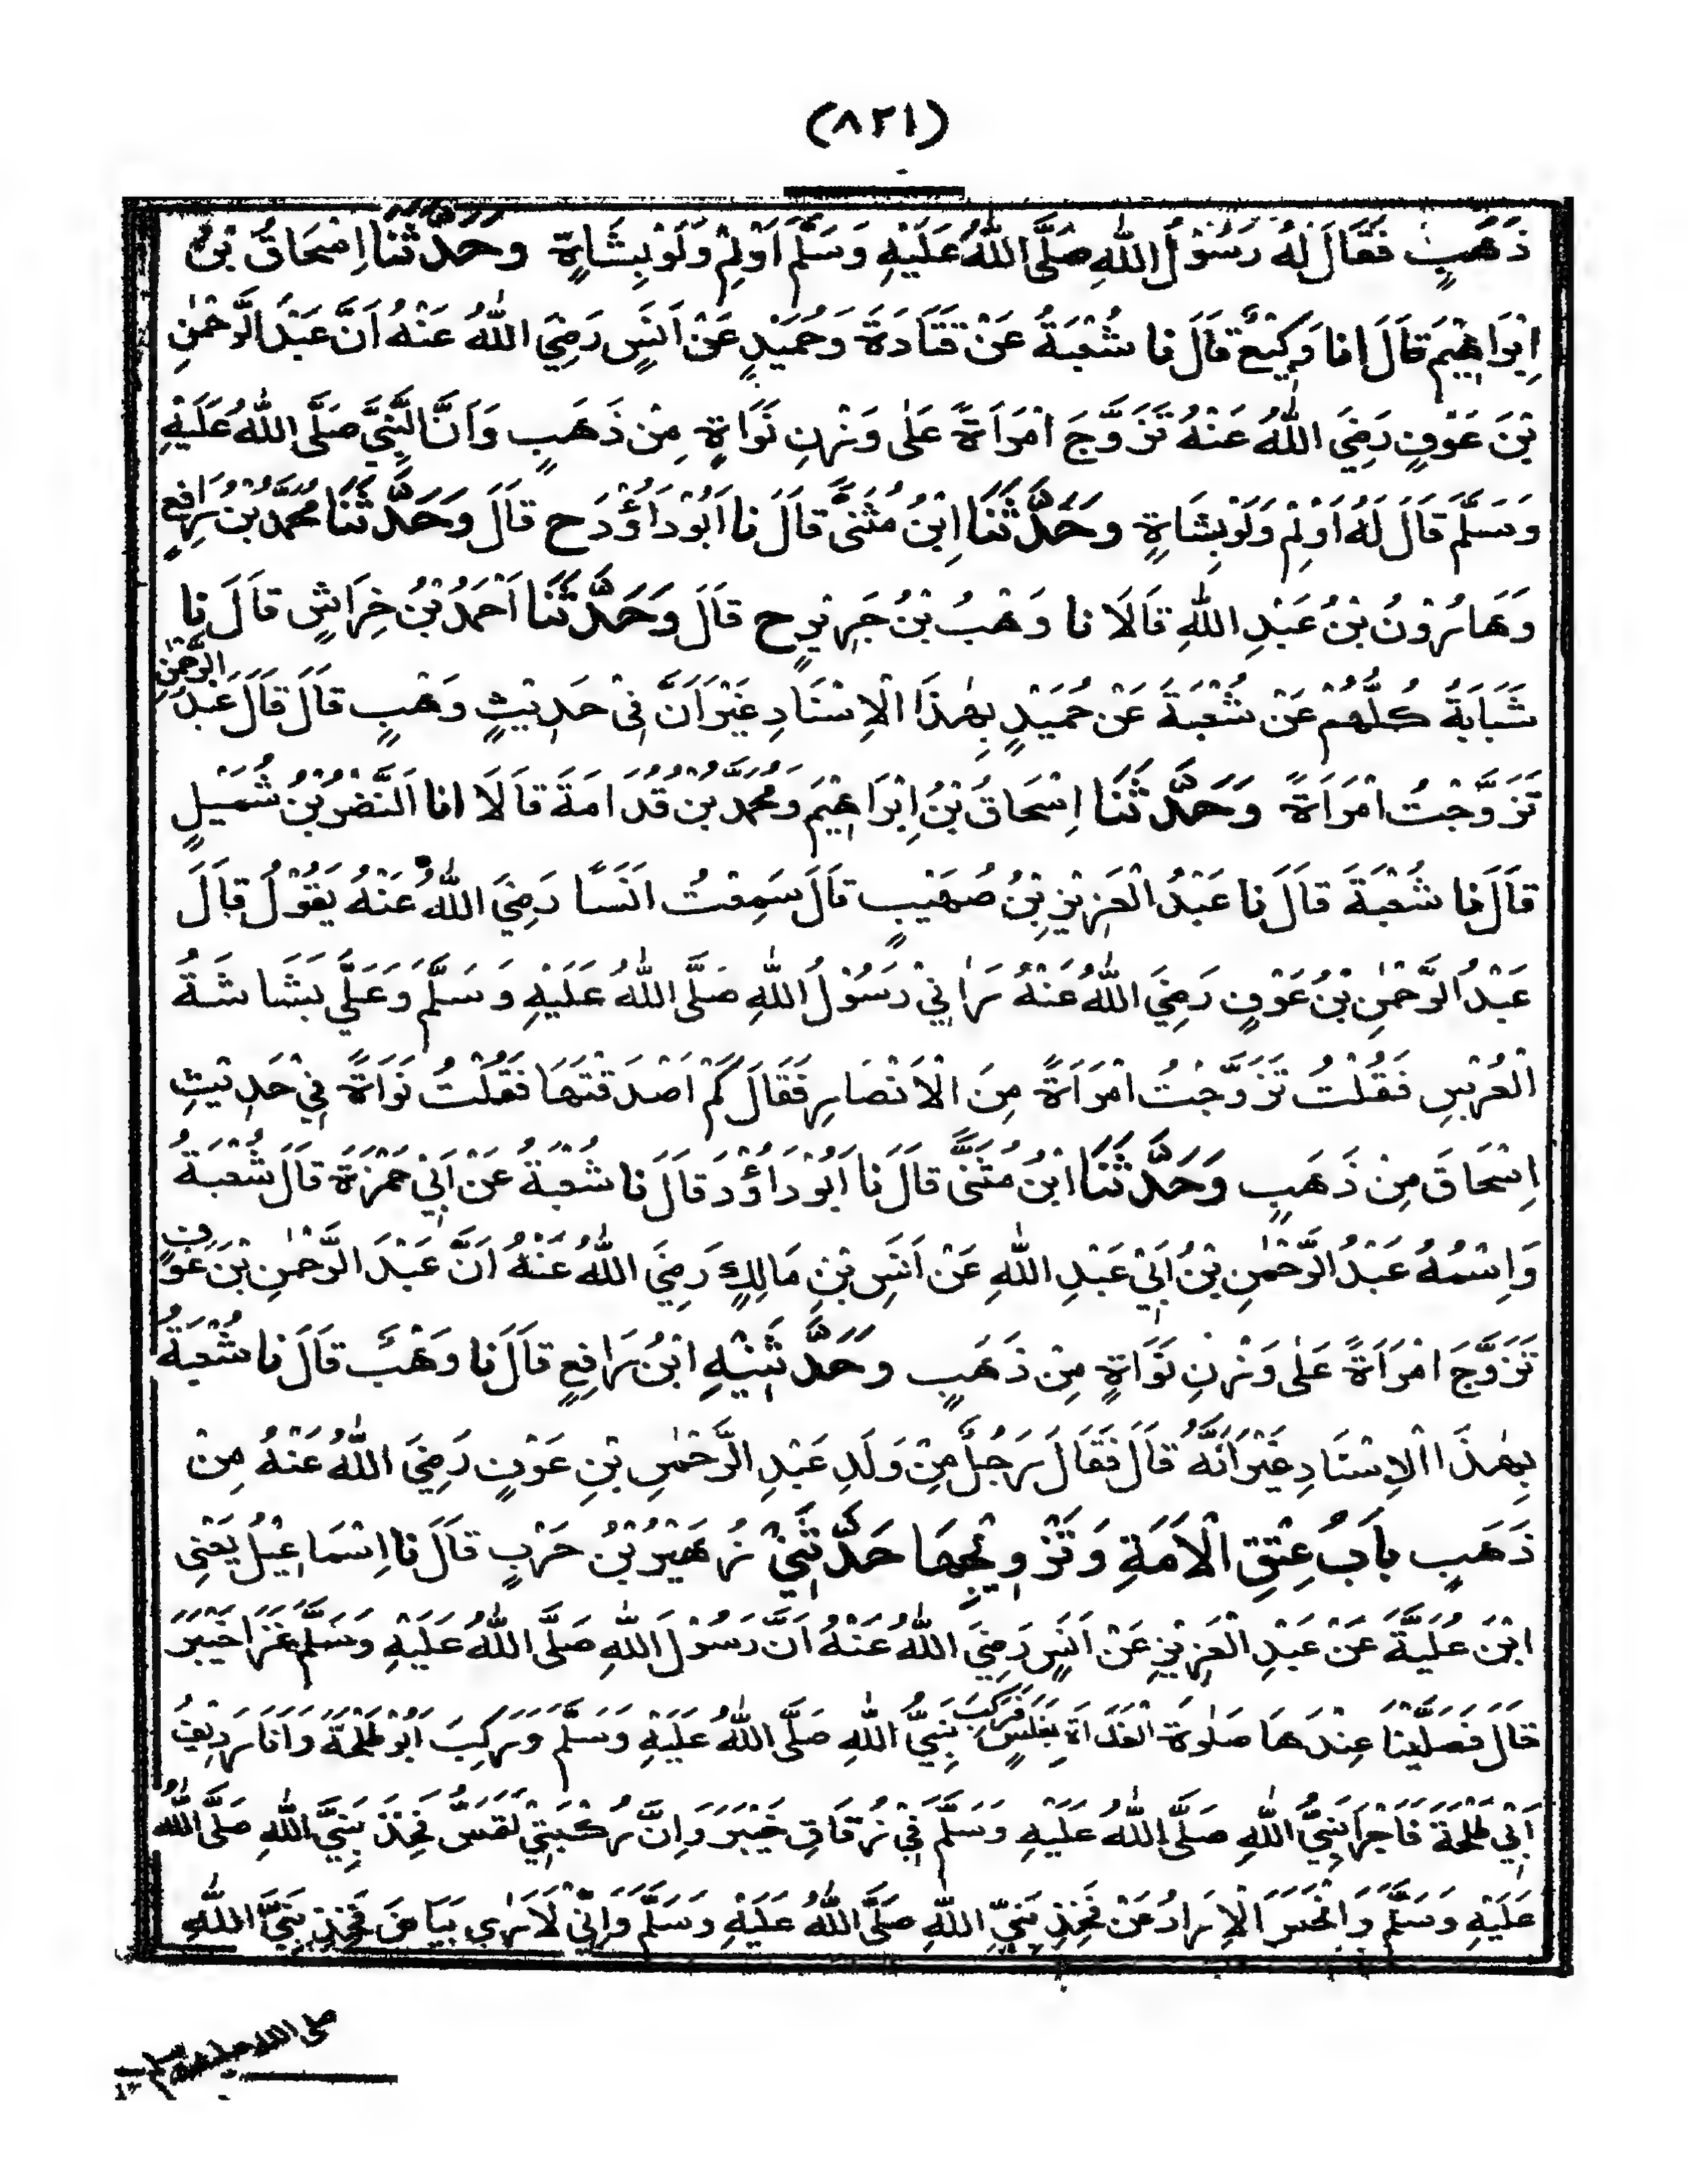 (٨٢١)
ذَهَبٍ فَقَالَ لَهُ رَسُوْلُ اللّٰهِ صَلَّى اللّٰهُ عَلَيْهِ وَسَلَّمَ اَوْلِمْ وَلَوْ بِشَاةٍ وَحَدَّثَنَا اِسْحَاقُ بْنُ
اِبْرَاهِيْمَ قَالَ انا وَكِيْعٌ قَالَ نا شُعْبَةُ عَنْ قَتَادَةَ وَحُمَيْدٍ عَنْ اَنَسٍ رَضِيَ اللّٰهُ عَنْهُ اَنَّ عَبْدَ الرَّحْمٰنِ
بْنَ عَوْفٍ رَضِيَ اللّٰهُ عَنْهُ تَزَوَّجَ امْرَاَةً عَلٰى وَزْنِ نَوَاةٍ مِنْ ذَهَبٍ وَاَنَّ النَّبِيَّ صَلَّى اللّٰهُ عَلَيْهِ
وَسَلَّمَ قَالَ لَهُ اَوْلِمْ وَلَوْ بِشَاةٍ وَحَدَّثَنَا ابْنُ مُثَنًّى قَالَ نا اَبُوْ دَاوُدَ ح قَالَ وَحَدَّثَنَا مُحَمَّدُ بْنُ رَافِعٍ
وَهَارُوْنُ بْنُ عَبْدِ اللّٰهِ قَالَا نا وَهْبُ بْنُ جَرِيْرٍ ح قَالَ وَحَدَّثَنَا اَحْمَدُ بْنُ خِرَاشٍ قَالَ نا
شَبَابَةُ كُلُّهُمْ عَنْ شُعْبَةَ عَنْ حُمَيْدٍ بِهٰذَا الْاِسْنَادِ غَيْرَ اَنَّ فِيْ حَدِيْثِ وَهْبٍ قَالَ قَالَ عَبْدُ الرَّحْمٰنِ
تَزَوَّجْتُ امْرَاَةً وَحَدَّثَنَا اِسْحَاقُ بْنُ اِبْرَاهِيْمَ وَمُحَمَّدُ بْنُ قُدَامَةَ قَالَا انا النَّضْرُ بْنُ شُمَيْلٍ
قَالَ نا شُعْبَةَ قَالَ نا عَبْدُ الْعَزِيْزِ بْنُ صُهَيْبٍ قَالَ سَمِعْتُ اَنَسًا رَضِيَ اللّٰهُ عَنْهُ يَقُوْلُ قَالَ
عَبْدُ الرَّحْمٰنِ بْنُ عَوْفٍ رَضِيَ اللّٰهُ عَنْهُ رَاٰنِيْ رَسُوْلُ اللّٰهِ صَلَّى اللّٰهُ عَلَيْهِ وَسَلَّمَ وَعَلَيَّ بَشَاشَةُ
الْعُرْسِ فَقُلْتُ تَزَوَّجْتُ امْرَاَةً مِنَ الْاَنْصَارِ فَقَالَ كَمْ اَصْدَقْتَهَا فَقُلْتُ نَوَاةً فِيْ حَدِيْثِ
اِسْحَاقَ مِنْ ذَهَبٍ وَحَدَّثَنَا ابْنُ مُثَنًّى قَالَ نا اَبُوْ دَاوُدَ قَالَ نا شُعْبَةُ عَنْ اَبِيْ حَمْزَةَ قَالَ شُعْبَةُ
وَاِسْمُهُ عَبْدُ الرَّحْمٰنِ بْنُ اَبِيْ عَبْدِ اللّٰهِ عَنْ اَنَسِ بْنِ مَالِكٍ رَضِيَ اللّٰهُ عَنْهُ اَنَّ عَبْدَ الرَّحْمٰنِ بْنَ عَوْفٍ
تَزَوَّجَ امْرَاَةً عَلٰى وَزْنِ نَوَاةٍ مِنْ ذَهَبٍ وَحَدَّثَنِيْهِ ابْنُ رَافِعٍ قَالَ نا وَهْبٌ قَالَ نا شُعْبَةُ
بِهٰذَا الْاِسْنَادِ غَيْرَ اَنَّهُ قَالَ فَقَالَ رَجُلٌ مِنْ وَلَدِ عَبْدِ الرَّحْمٰنِ بْنِ عَوْفٍ رَضِيَ اللّٰهُ عَنْهُ مِنْ
ذَهَبٍ بَابُ عِتْقِ الْاَمَةِ وَتَزْوِيْجِهَا حَدَّثَنِيْ زُهَيْرُ بْنُ حَرْبٍ قَالَ نا اِسْمَاعِيْلُ يَعْنِى
ابْنَ عُلَيَّةَ عَنْ عَبْدِ الْعَزِيْزِ عَنْ اَنَسٍ رَضِيَ اللّٰهُ عَنْهُ اَنَّ رَسُوْلَ اللّٰهِ صَلَّى اللّٰهُ عَلَيْهِ وَسَلَّمَ غَزَا خَيْبَرَ
قَالَ فَصَلَّيْنَا عِنْدَهَا صَلٰوةَ الْغَدَاةِ بِغَلَسٍ فَرَكِبَ نَبِيُّ اللّٰهِ صَلَّى اللّٰهُ عَلَيْهِ وَسَلَّمَ وَرَكِبَ اَبُوْ طَلْحَةَ وَاَنَا رَدِيْفُ
اَبِيْ طَلْحَةَ فَاَجْرٰى نَبِيُّ اللّٰهِ صَلَّى اللّٰهُ عَلَيْهِ وَسَلَّمَ فِيْ زُقَاقِ خَيْبَرَ وَاِنَّ رُكْبَتِيْ لَتَمَسُّ فَخِذَ نَبِيِّ اللّٰهِ صَلَّى اللّٰهُ
عَلَيْهِ وَسَلَّمَ وَانْحَسَرَ الْاِزَارُ عَنْ فَخِذِ نَبِيِّ اللّٰهِ صَلَّى اللّٰهُ عَلَيْهِ وَسَلَّمَ وَاِنِّيْ لَاَرٰى بَيَاضَ فَخِذِ نَبِيِّ اللّٰهِ
صلى الله عليه وسلم